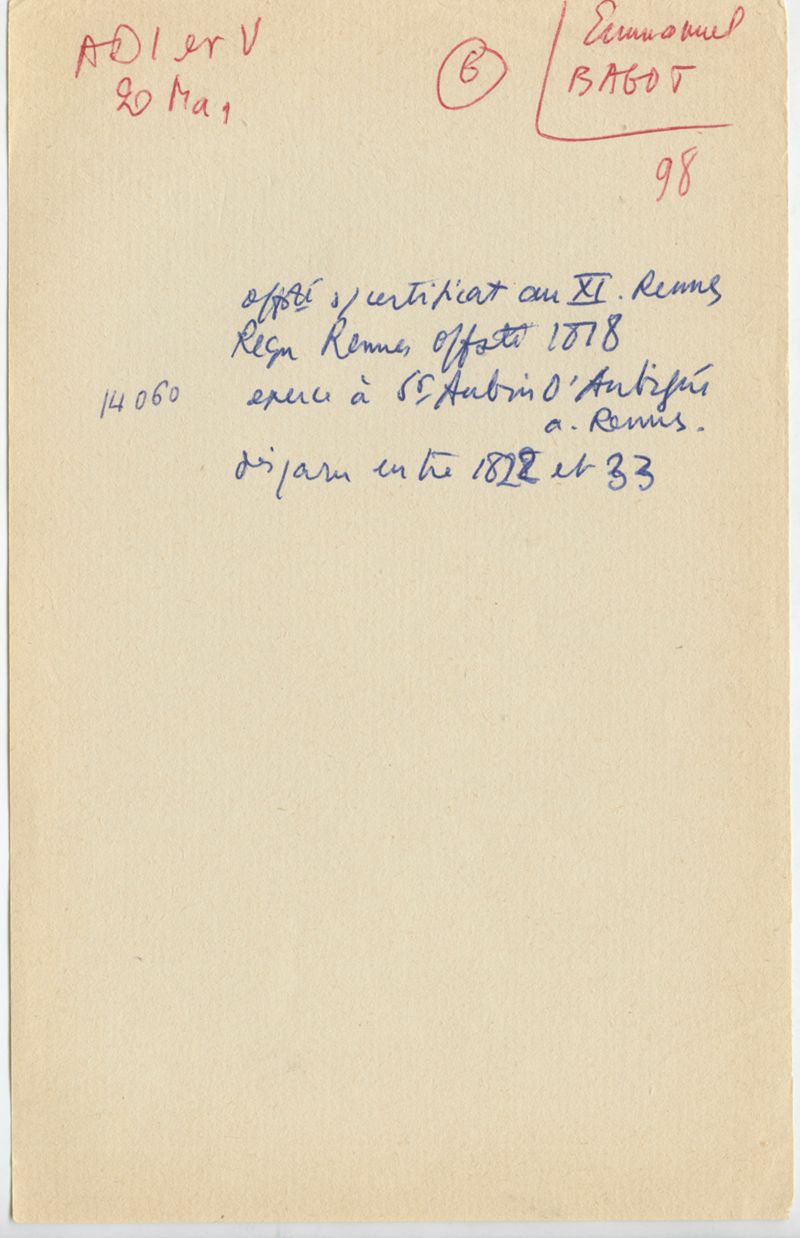 AD I et V
20 Ma 1
6
Emmanuel
BAGOT
98
offsté s/certificat an XI. Rennes
Reçu Rennes offsté 1818
14060
exerce à St Aubin D'Aubigné
a. Rennes.
disparu entre 1822 et 33